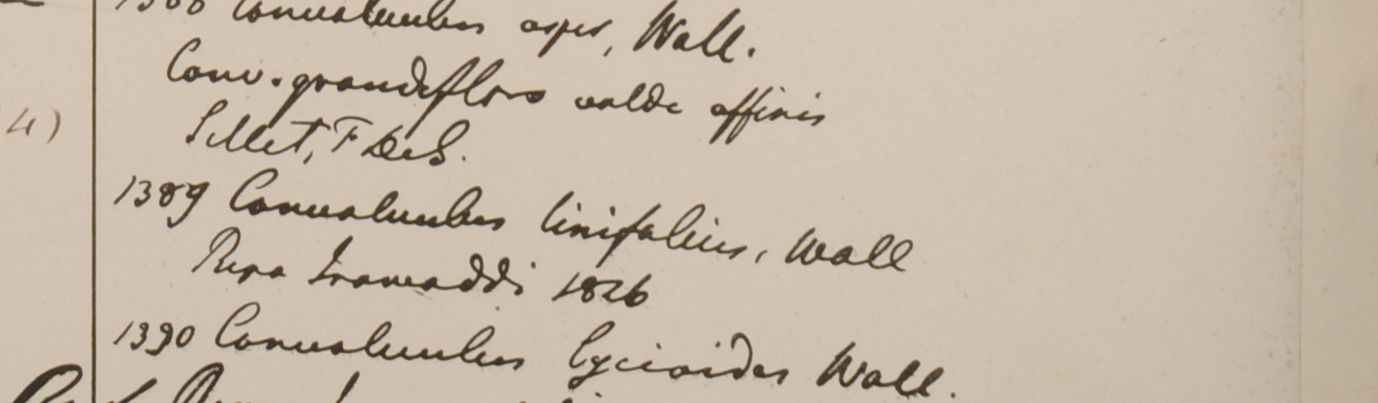 1388 Convolvulus asper, Wall.
Conv. grandifloro valde affinis
Sillet, F. De S.
4)
1389 Convolvulus linifolius, Wall
Ripa Irawaddi 1826
1390 Convolvulus lycioides Wall.